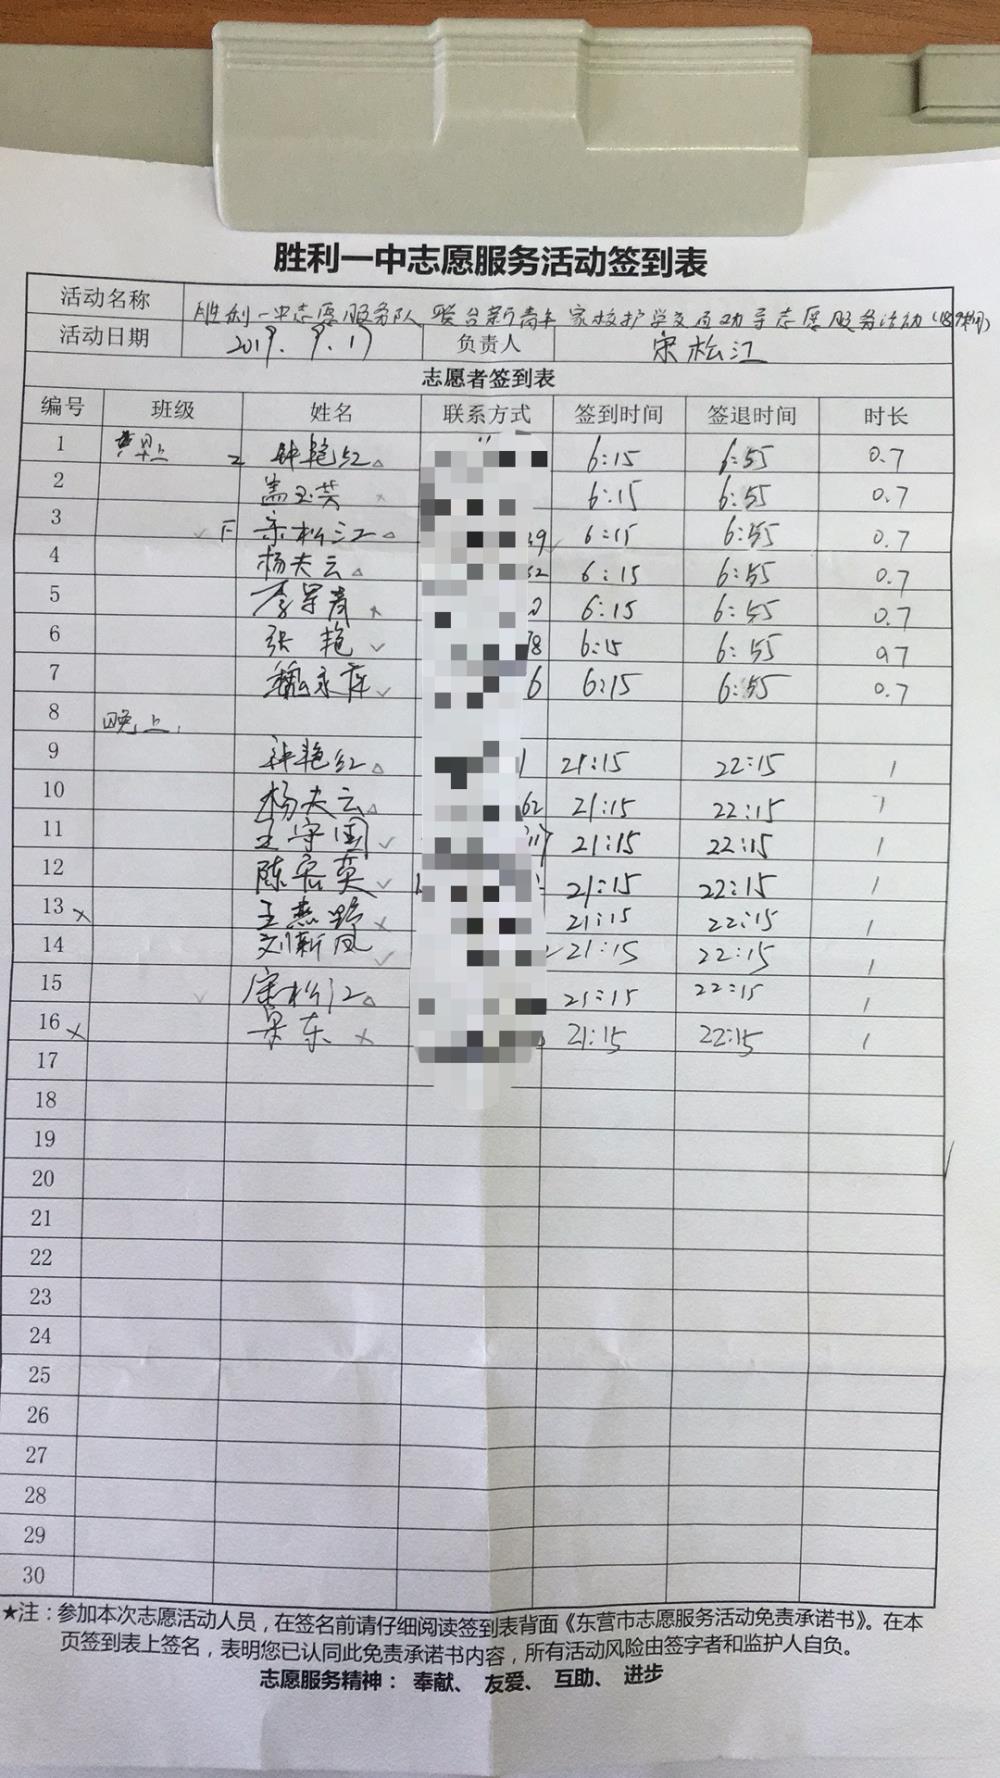 胜利一中志愿服务活动签到表
活动名称 胜利一中志愿服务队联合新青年家校护学交通劝导志愿服务活动
活动日期 2019.9.17 负责人 宋松江
志愿者签到表
编号 班级 姓名 联系方式 签到时间 签退时间 时长
1 早上 钟艳红△ 6:15 6:55 0.7
2 盖玉芬 6:15 6:55 0.7
3 宋松江△ 39 6:15 6:55 0.7
4 杨夫云△ 52 6:15 6:55 0.7
5 李 青 6:15 6:55 0.7
6 张艳✓ 78 6:15 6:55 0.7
7 魏永萍✓ 6 6:15 6:55 0.7
8 晚上
9 钟艳红△ 1 21:15 22:15 1
10 杨夫云△ 62 21:15 22:15 1
11 王守国✓ 21:15 22:15 1
12 陈容英✓ 21:15 22:15 1
13× 王燕 × 21:15 22:15 1
14 刘新凤✓ 21:15 22:15 1
15 宋松江△ 21:15 22:15 1
16× 东× 21:15 22:15 1
17
18
19
20
21
22
23
24
25
26
27
28
29
30
★注：参加本次志愿活动人员，在签名前请仔细阅读签到表背面《东营市志愿服务活动免责承诺书》。在本
页签到表上签名，表明您已认同此免责承诺书内容，所有活动风险由签字者和监护人自负。
志愿服务精神： 奉献、 友爱、 互助、 进步